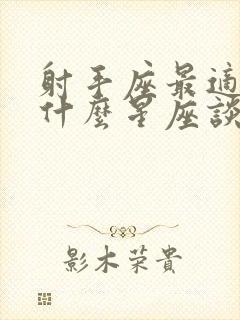 射手座最適
什麼星座談
影木荣貴